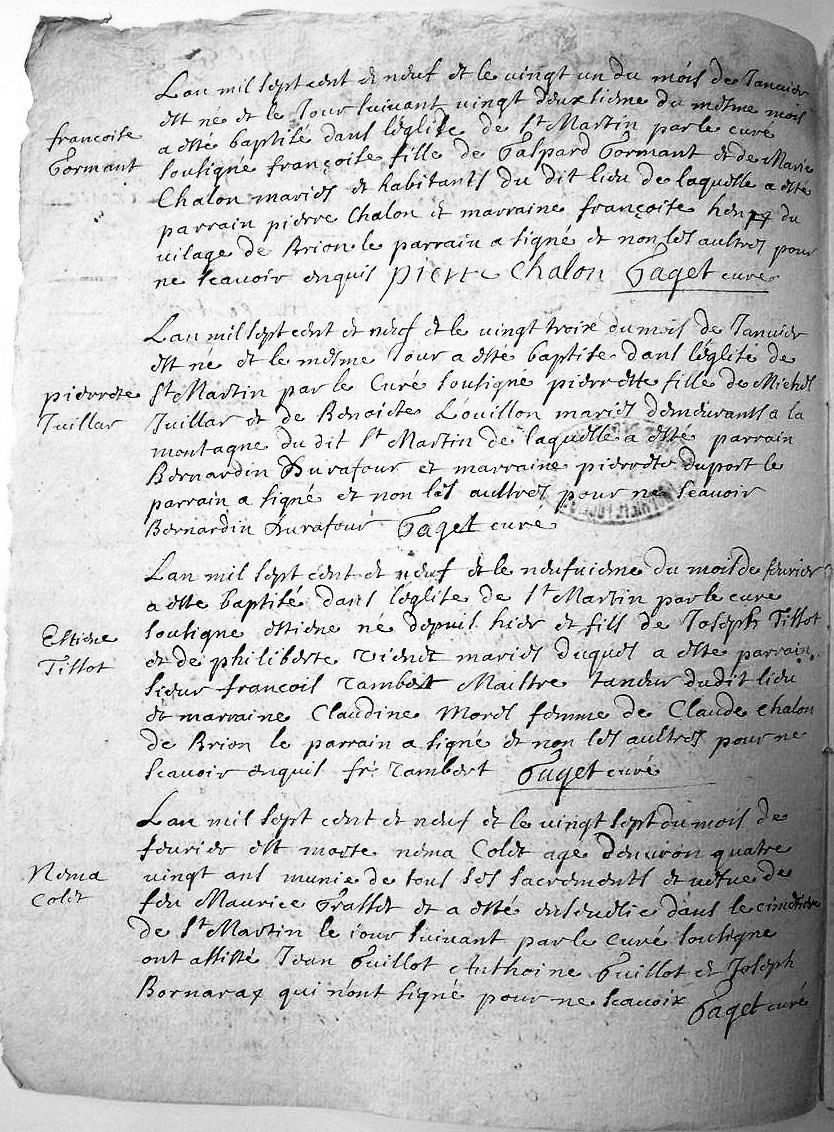 Lan mil sept cent et neuf et le vingt un du mois de Januier
est né et le Jour suivant vingt deuxsieme du mesme mois
a esté baptisé dans leglise de St Martin par le curé
francoise
Gormant
soussigné françoise fille de Gaspard Gormant et de Marie
Chalon mariés et habitants du dit lieu de laquelle a esté
parrain pierre Chalon et marraine françoise du
vilage de Brion le parrain a signé et non les aultres pour
ne scavoir enquis pierre Chalon Gaget curé
Lan mil sept cent et neuf et le vingt troix du mois de Januier
est né et le mesme Jour a esté baptisé dans leglise de
pierrete
Juillar
St Martin par le Curé sousigné pierrette fille de Michel
Juillar et de Benoiste Louillon mariés demeurants a la
montagne du dit St Martin de laquelle a esté parrain
Bernardin Durafour et marraine pierrete duport le
parrain a signé et non les aultres pour ne scavoir
Bernardin Durafour Gaget curé
Lan mil sept cent et neuf et le neufuieme du mois de feurier
a esté baptisé dans leglise de St Martin par le curé
Estiene
Tissot
sousigne estiene né depuis hier et fils de Joseph Tissot
et de philiberte mariés duquel a esté parrain
sieur francois rambert Maistre taneur dudit lieu
et marraine Claudine Morel femme de Claude chalon
de Brion le parrain a signé et non les aultres pour ne
scavoir enquis fr. rambert Gaget curé
Lan mil sept cent et neuf et le vingt sept du mois de
feurier est morte nema Colet age denuiron quatre
Nema
Colet
vingt ans munie de tous ses sacrements et uefue de
feu Maurice Grasset et a esté enseuelie dans le cimetiere
de St Martin le iour suivant par le curé sousigne
ont assisté Jean Guillot Anthoine Guillot et Joseph
Bornarax qui n'ont signé pour ne scauoir Gaget curé